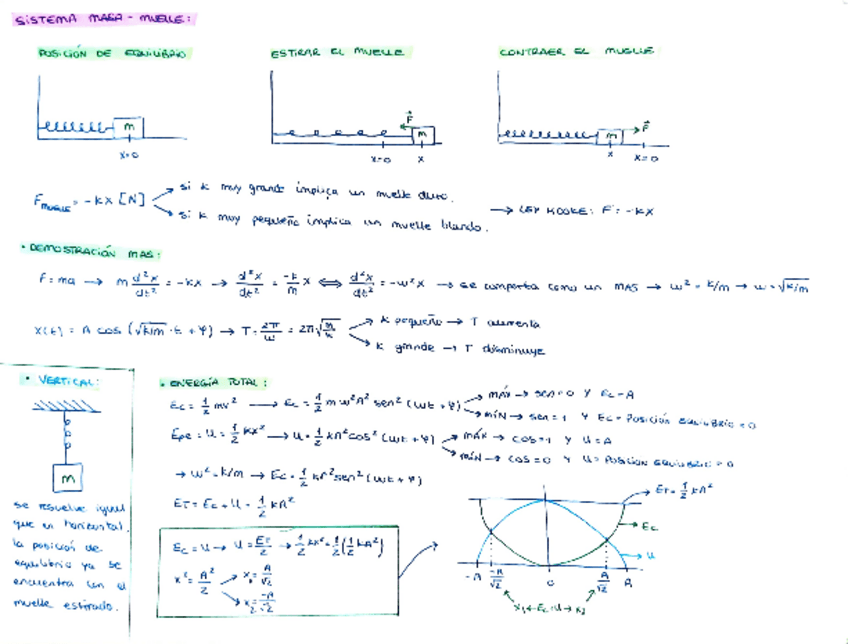 SISTEMA MASA - MUELLE:
POSICIÓN DE EQUILIBRIO
ESTIRAR EL MUELLE
CONTRAER EL MUELLE
m
x=0
F
m
x=0 x
m
F
x x=0
F_MUELLE = -kx [N]
si k muy grande implica un muelle duro.
si k muy pequeña implica un muelle blando.
→ LEY HOOKE: F = -kx
• DEMOSTRACIÓN MAS:
F = ma → m d²x/dt² = -kx → d²x/dt² = -k/m x ⟺ d²x/dt² = -w²x → se comporta como un MAS → w² = k/m → w = √k/m
x(t) = A cos (√k/m · t + φ) → T = 2π/w = 2π√m/k
k pequeño → T aumenta
k grande → T disminuye
• VERTICAL:
m
se resuelve igual
que en horizontal.
la posición de
equilibrio ya se
encuentra con el
muelle estirado.
• ENERGÍA TOTAL:
Ec = 1/2 mv² → Ec = 1/2 m w² A² sen² (wt + φ)
MÍN → sen = 1 y Ec = POSICIÓN EQUILIBRIO = 0
Epe = U = 1/2 kx² → U = 1/2 kA² cos² (wt + φ)
MÁX → cos = 1 y U = A
MÍN → cos = 0 y U = POSICIÓN EQUILIBRIO = 0
→ w² = k/m → Ec = 1/2 kA² sen² (wt + φ)
ET = Ec + U = 1/2 kA²
Ec = U → U = ET/2 → 1/2 kx² = 1/2 (1/2 kA²)
x² = A²/2
x₁ = A/√2
x₂ = -A/√2
ET = 1/2 kA²
Ec
U
-A -A/√2 0 A/√2 A
x₁ ← Ec = U → x₂